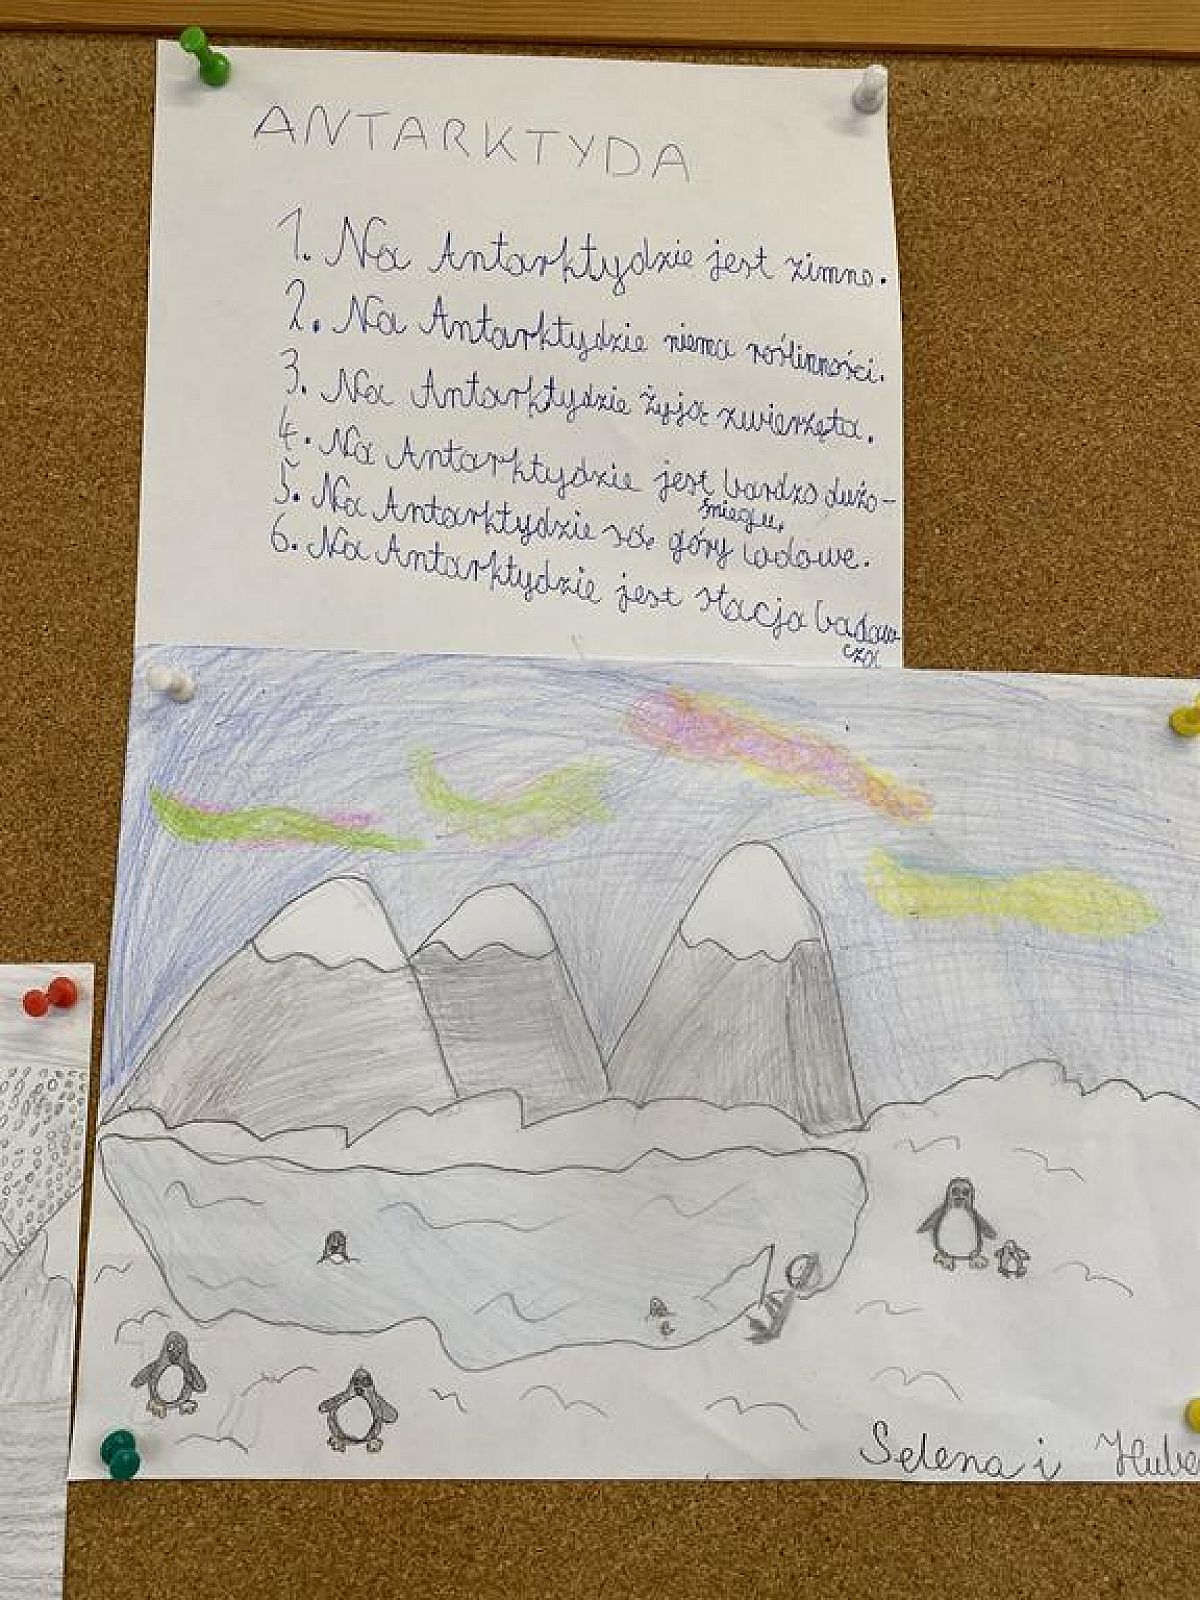 ANTARKTYDA
1. Na Antarktydzie jest zimno.
2. Na Antarktydzie niema roślinności.
3. Na Antarktydzie żyją zwierzęta.
4. Na Antarktydzie jest bardzo dużo-
śniegu.
5. Na Antarktydzie są góry lodowe.
6. Na Antarktydzie jest stacja badaw
cza
Selena i Hube